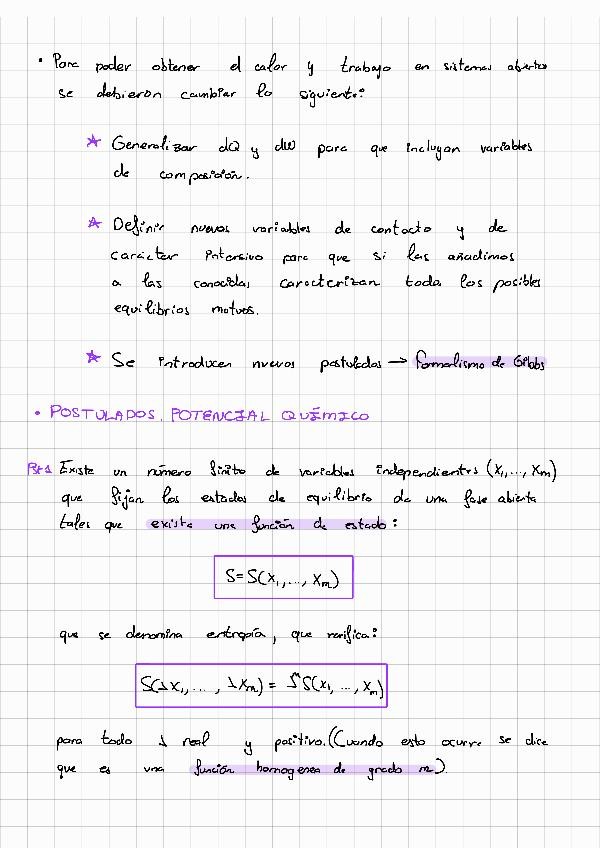 • Para poder obtener el calor y trabajo en sistemas abiertos
se debieron cambiar lo siguiente:
☆ Generalizar dQ y dW para que incluyan variables
de composición.
☆ Definir nuevas variables de contacto y de
carácter intensivo para que si las añadimos
a las conocidas caracterizan todo los posibles
equilibrios mutuos.
☆ Se introducen nuevos postulados → formalismo de Gibbs
• POSTULADOS. POTENCIAL QUÍMICO
Pst1 Existe un número finito de variables independientes (X₁,..., Xm)
que fijan los estados de equilibrio de una fase abierta
tales que existe una función de estado:
S=S(X₁,..., Xm)
que se denomina entropía, que verifica:
S(λX₁,..., λXm) = λᵐS(X₁, ..., Xm)
para todo λ real y positivo. (Cuando esto ocurre se dice
que es una función homogenea de grado m).